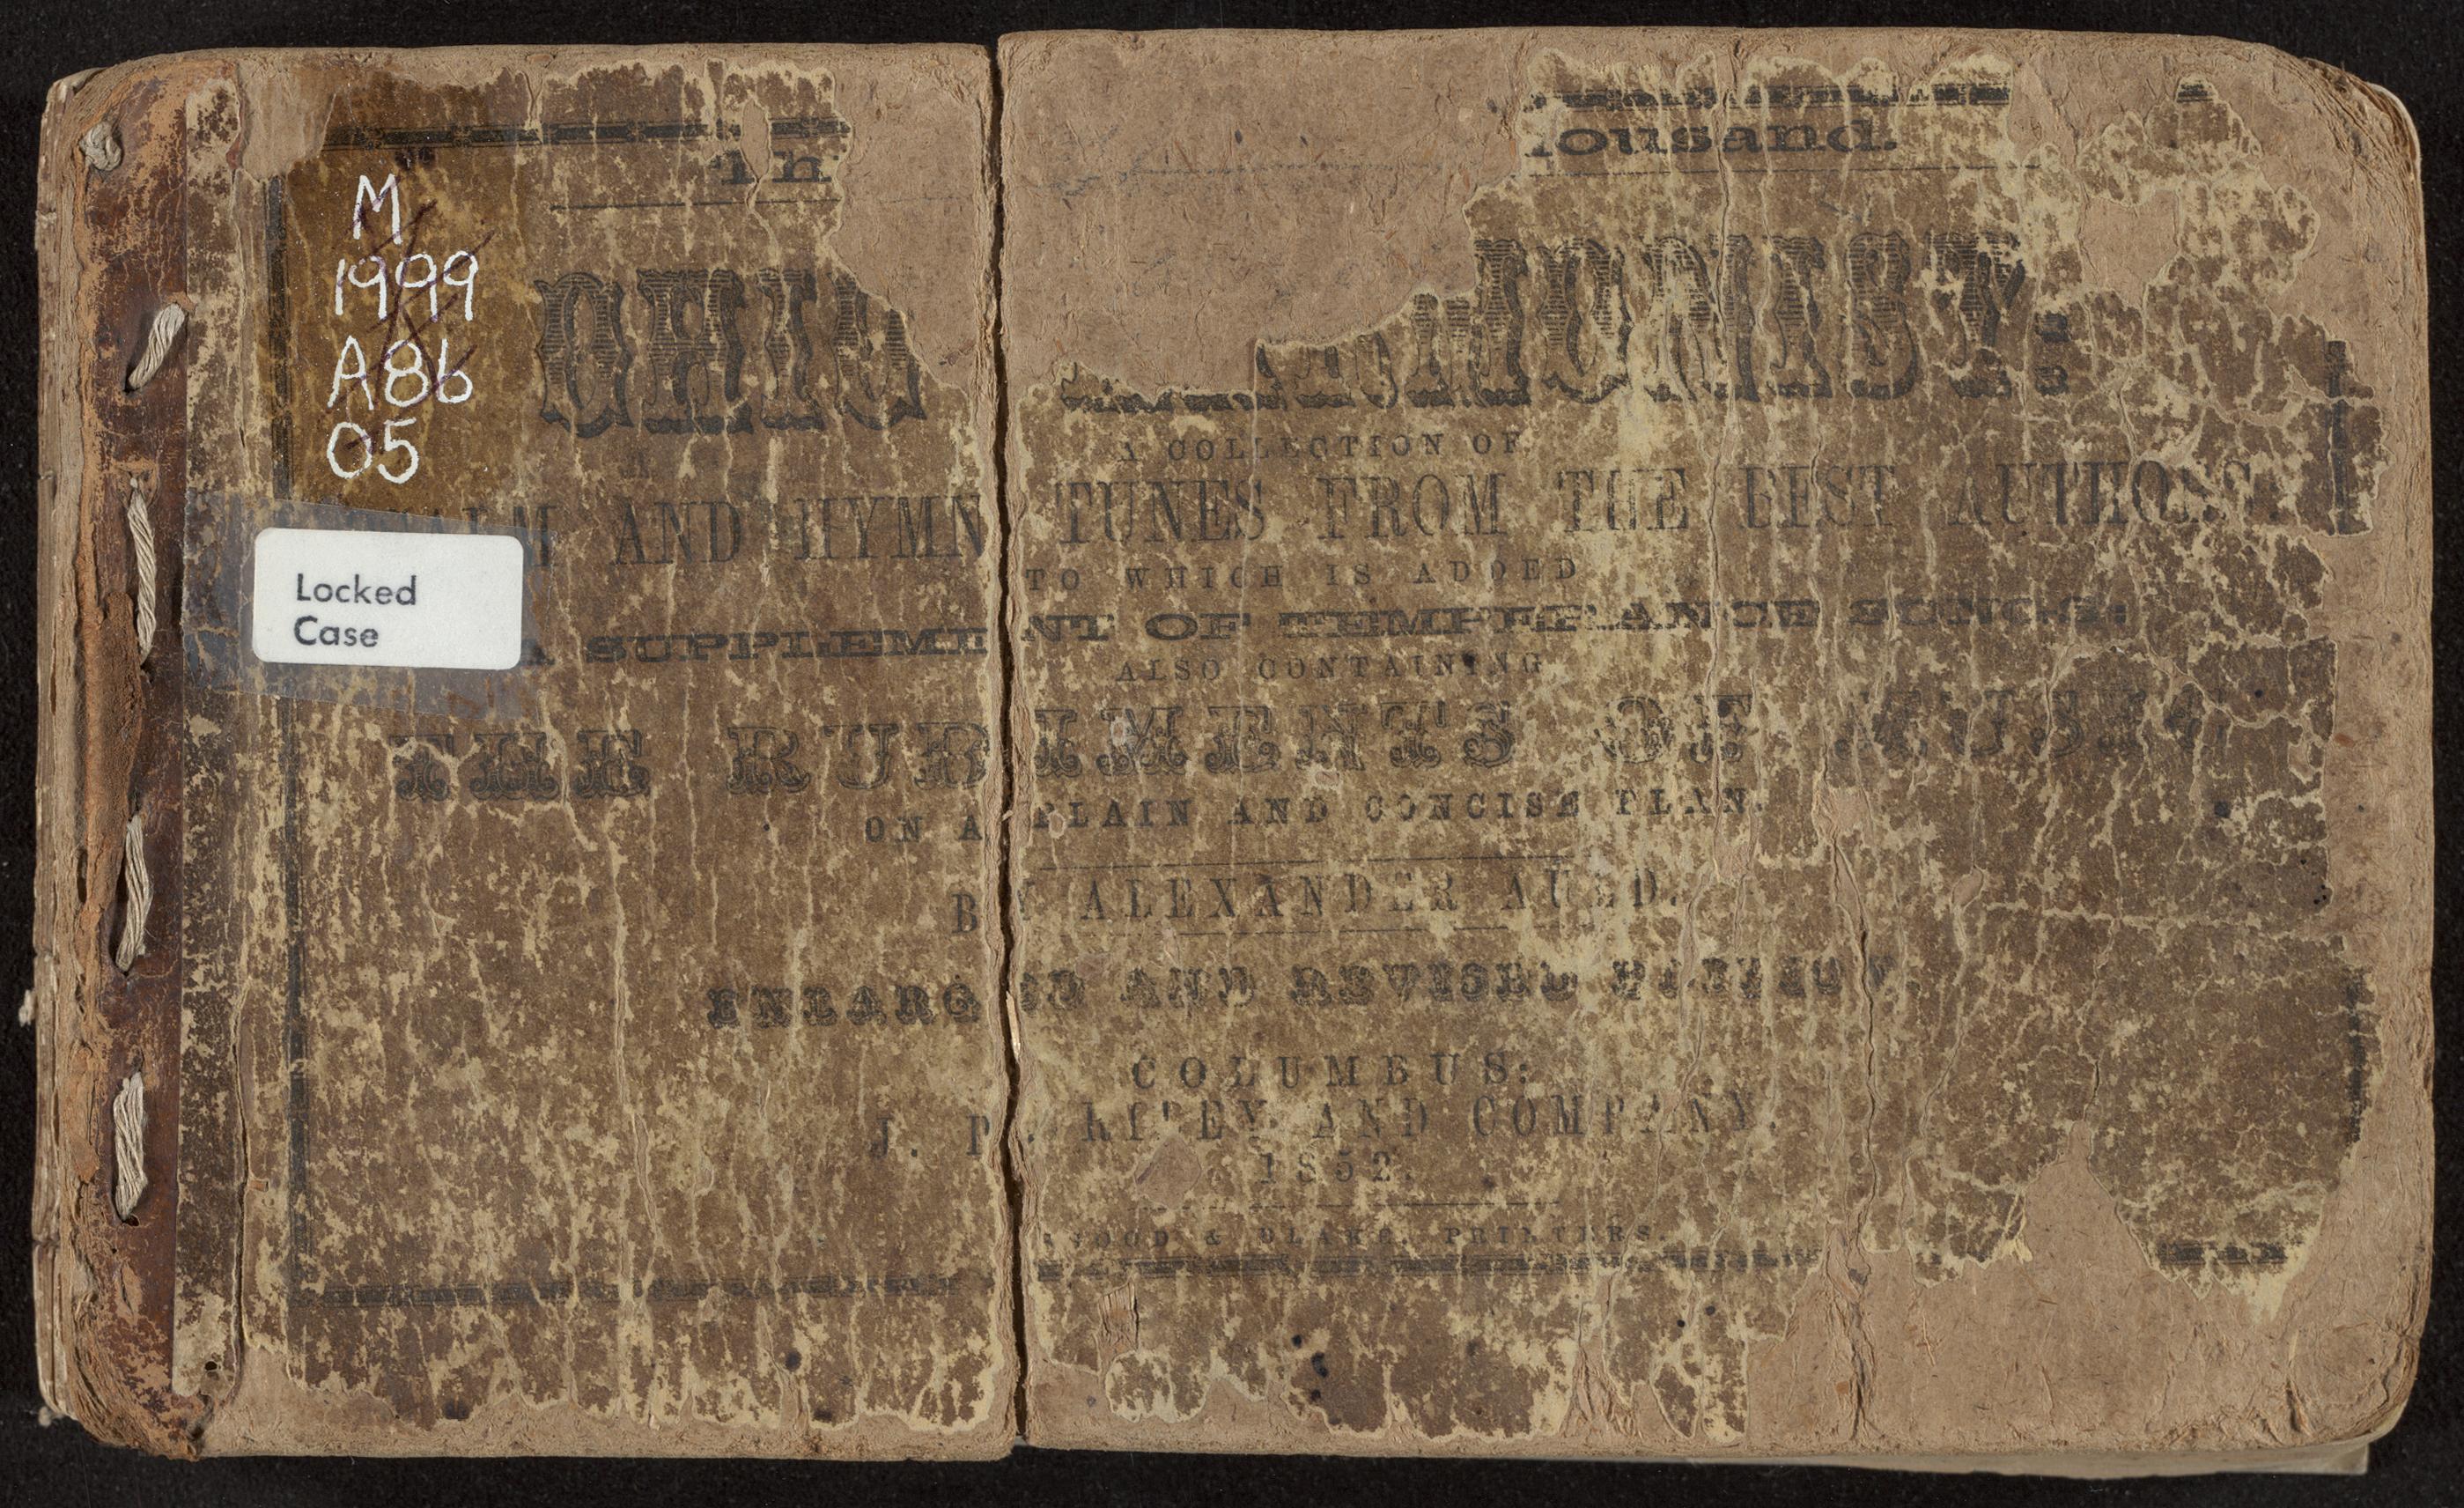 ousand.
M
1999
A86
O5
OHIO
A COLLECTION OF
AND HYMN TUNES FROM THE BEST AUTHORS
TO WHICH IS ADDED
Locked
Case
A SUPPLEMENT OF TEMPERANCE SONGS:
ALSO CONTAINING
THE RUDIMENTS OF MUSIC
ON A PLAIN AND CONCISE PLAN.
BY ALEXANDER AULD.
ENLARGED AND REVISED EDITION
COLUMBUS:
J. AND COMPANY.
1852.
& BLAKE, PRINTERS.